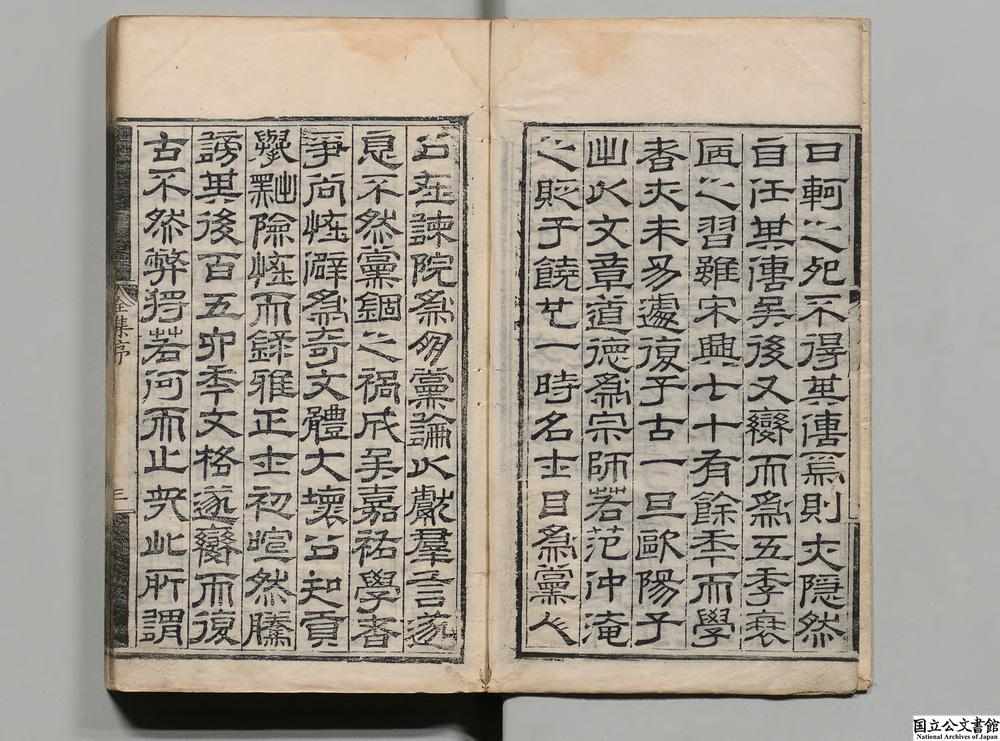 曰軻之死不得其傳焉則夫隱然
自任其傳矣後又變而爲五季衰
陋之習雖宋興七十有餘年而學
者夫未易遽復于古一旦歐陽子
出以文章道德爲宗師若范仲淹
之貶子饒也一時名士目爲黨人
公在諫院爲朋黨論以獻羣言遂
息不然黨錮之禍成矣嘉祐學者
爭尚怪僻爲奇文體大壞公知貢
擧黜險怪而錄雅正士初喧然騰
謗其後百五六年文格遂變而復
古不然弊將若何而止哉此所謂
全集序
三
国立公文書館
National Archives of Japan